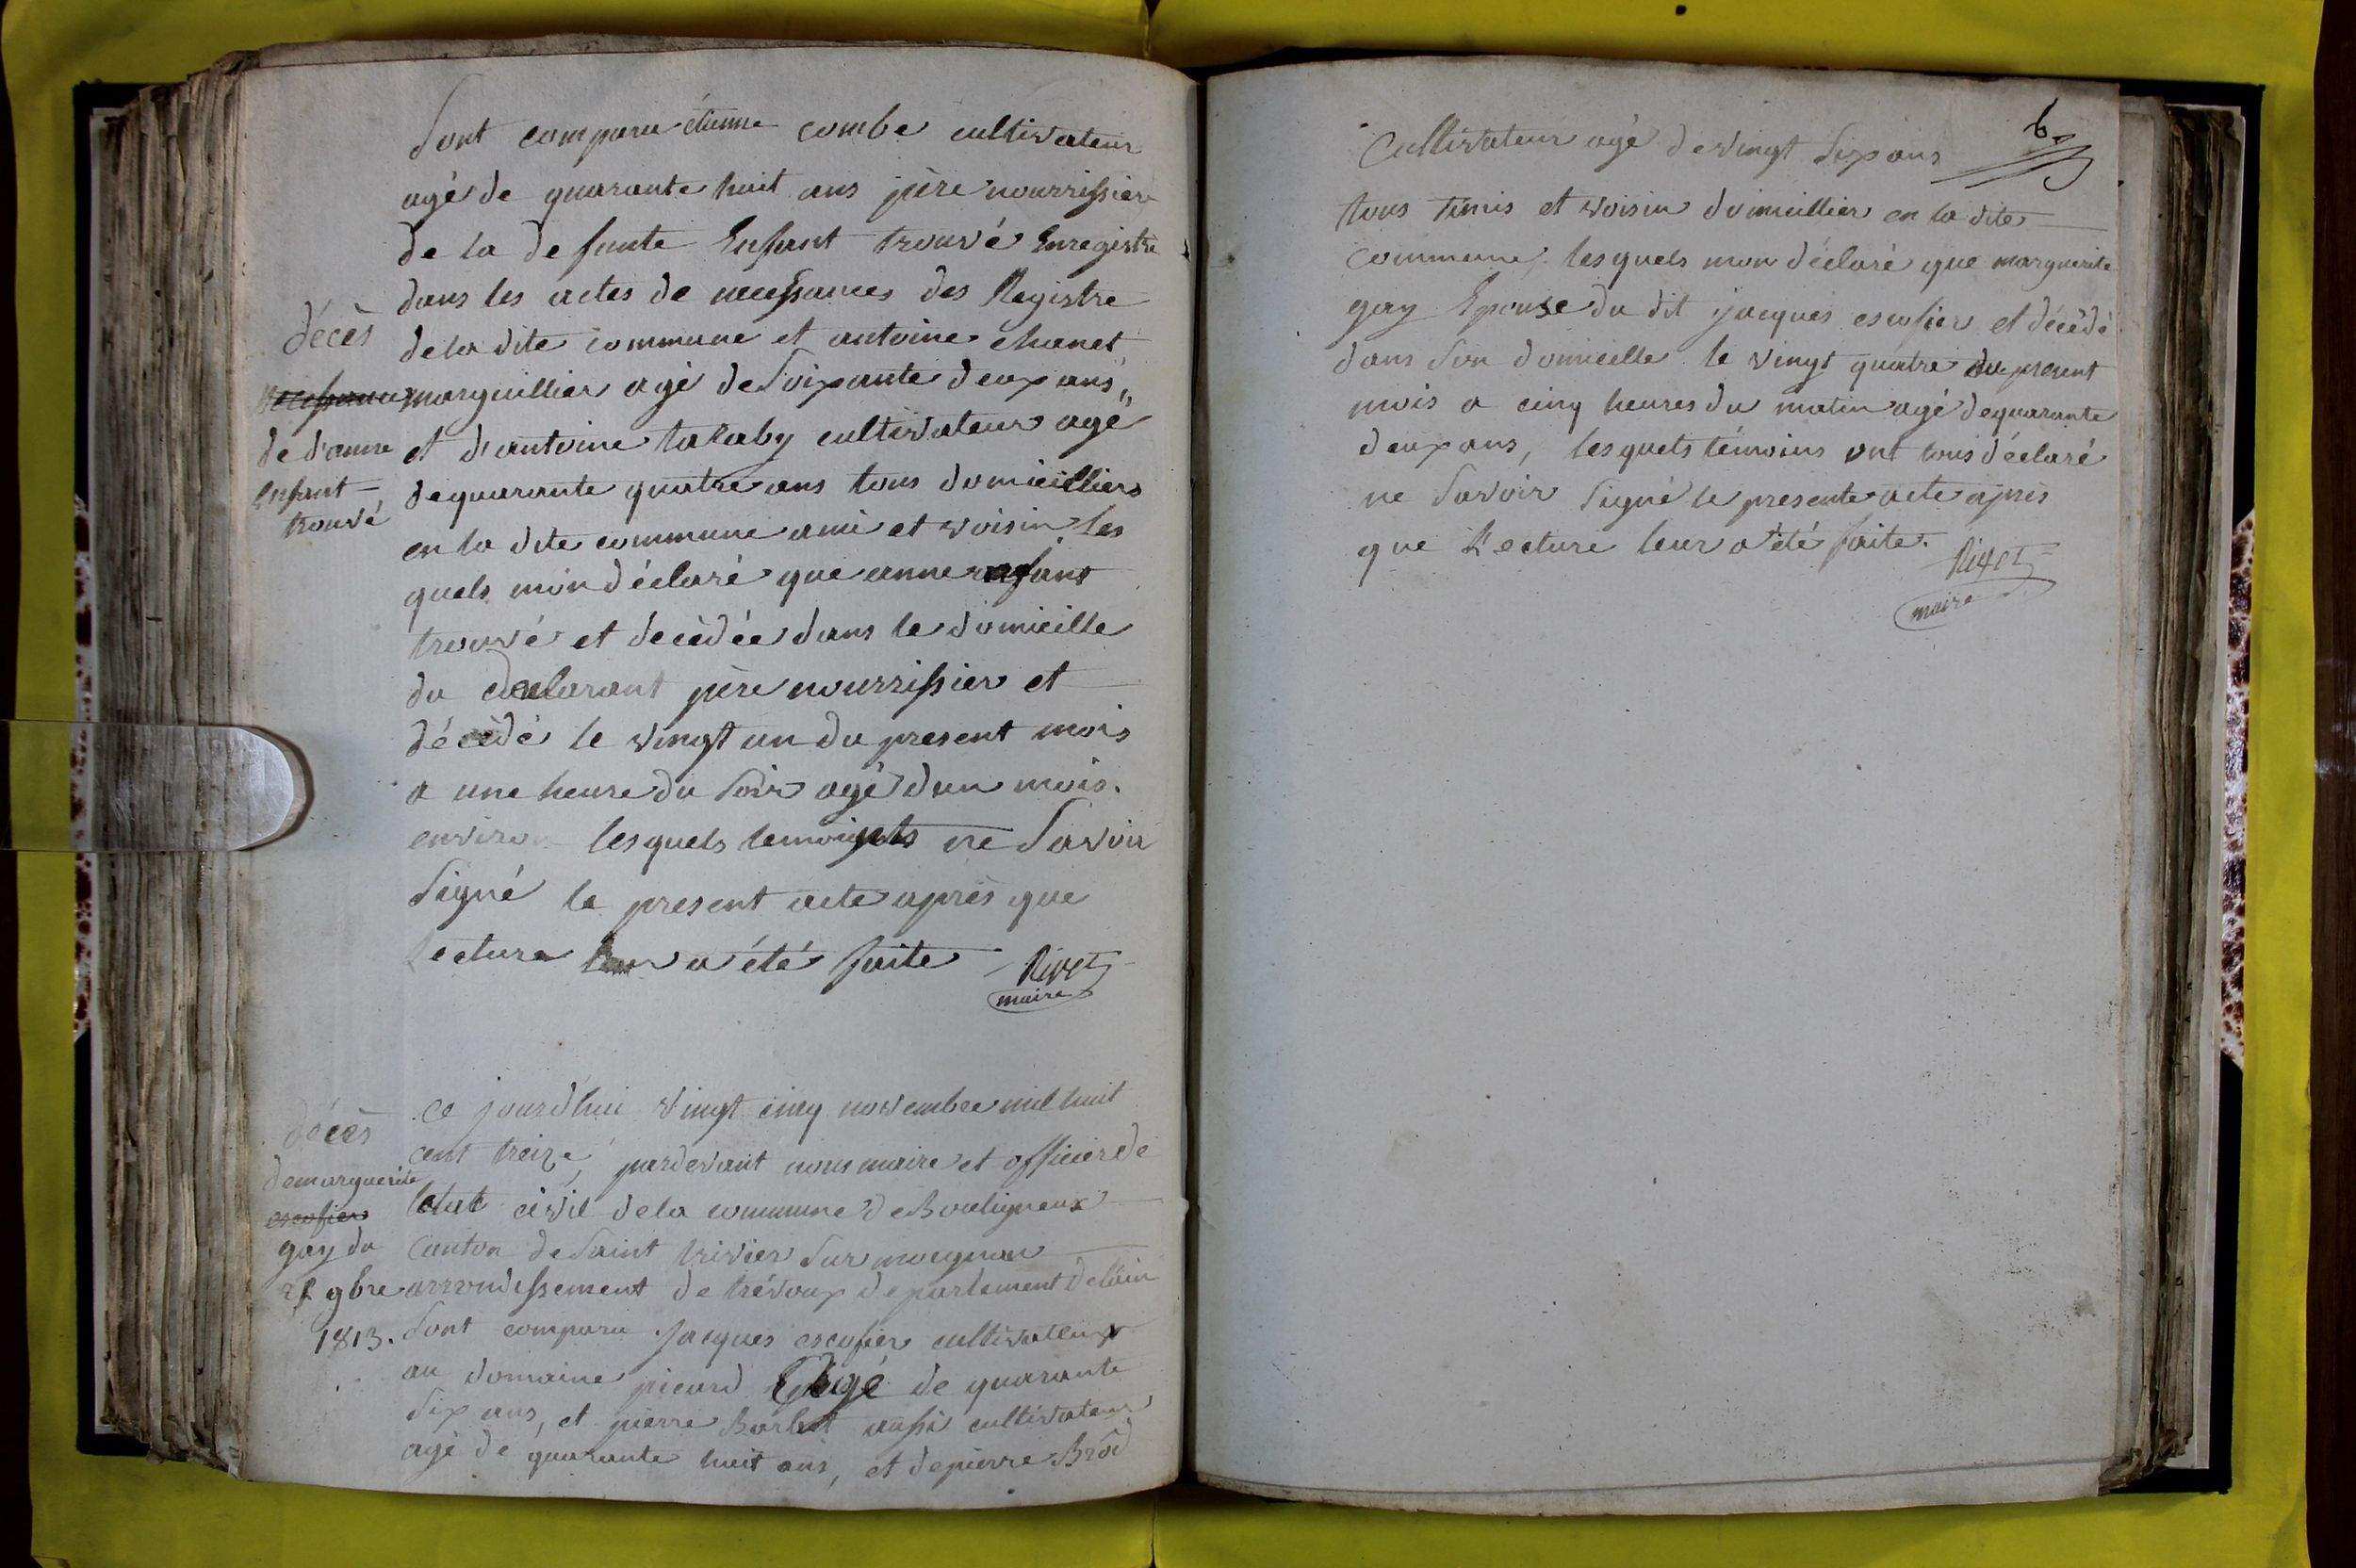 Sont comparu étienne combe cultivateur
agé de quarante huit ans père nourrissier
de la defunte Enfant trouvé Enregistre
dans les actes de necessances des Registre
décès
de la dite commune et antoine chanet
marguillier agé de Soixante deux ans,,
de d'anne
et d'antoine talaby cultivateur agé
Enfant
de quarante quatre ans tous domicilliers
trouvé
en la dite commune ami et voisin, les
quels mon déclaré que anne enfant
trouvé et decèdée dans le domicille
du déclarant père nourrissier et
décèdé le vingt un du present mois
a une heure du Soir agé dun mois.
environ lesquels temoins ne Savoir
Signé le present acte après que
lecture leur a été faite
Rivet
maire
décès
de marguerite
escofier
gay du
9bre
1813.
ce jourdhui vingt cinq novembre mil huit
cent treize, pardevant nous maire et officier de
letat civil de la commune de Bouligneux
Canton de Saint trivier Sur moignan
arrondissement de trévoux departement de lain
Sont comparu jacques escofier cultivateur
au domaine picard agé de quarante
Six ans, et pierre Barlet aussi cultivateur
agé de quarante huit ans, et de pierre Brod
6
Cultivateur agé de vingt Six ans
tous témis et voisin domicillier en la dite
commune, lesquels mon déclaré que marguerite
gay Epouse du dit jacques escofier et décèdé
dans Son domicille le vingt quatre du present
mois a cinq heures du matin agé de quarante
deux ans, lesquels témoins ont tous déclaré
ne Savoir Signé le presente acte après
que Lecture leur a été faite.
Rivet
maire